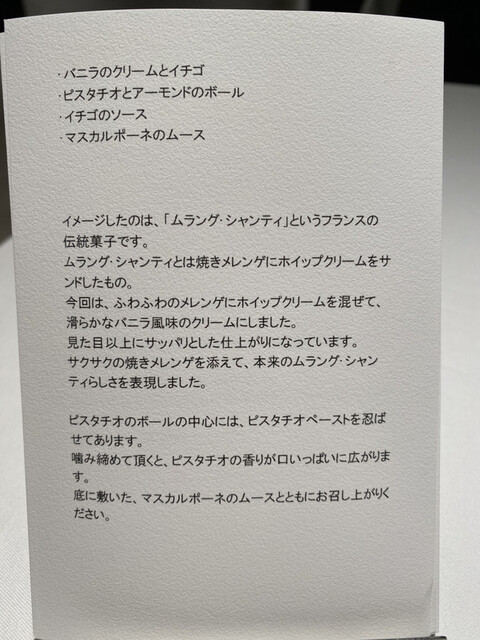 ・バニラのクリームとイチゴ
・ピスタチオとアーモンドのボール
・イチゴのソース
・マスカルポーネのムース
イメージしたのは、「ムラング・シャンティ」というフランスの
伝統菓子です。
ムラング・シャンティとは焼きメレンゲにホイップクリームをサ
ンドしたもの。
今回は、ふわふわのメレンゲにホイップクリームを混ぜて、
滑らかなバニラ風味のクリームにしました。
見た目以上にサッパリとした仕上がりになっています。
サクサクの焼きメレンゲを添えて、本来のムラング・シャン
ティらしさを表現しました。
ピスタチオのボールの中心には、ピスタチオペーストを忍ば
せてあります。
噛み締めて頂くと、ピスタチオの香りが口いっぱいに広がりま
す。
底に敷いた、マスカルポーネのムースとともにお召し上がりく
ださい。